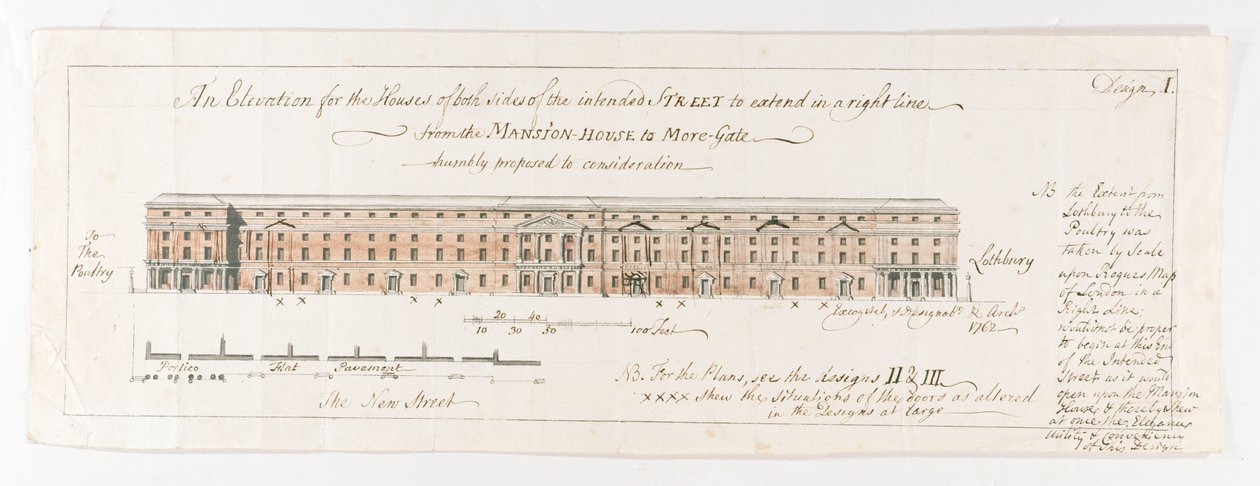 Design I.
An Elevation for the Houses of both sides of the intended STREET to extend in a right line
from the MANSION-HOUSE to More-Gate
humbly proposed to consideration
To
The
Poultry
Lothbury
NB the Extent from
Lothbury to the
Poultry was
taken by Scale
upon Roques Map
of London in a
Right Line:
would not be proper
to begin at this En
of the Intended
Street as it would
open upon the Mansion
House & thereby shew
at once the Elegance
Utility & Conveniency
of this Design
Excogitat, & Designat
Arch
1762
20 40
10 30 50 100 Feet
Portico Flat Pavement
The New Street
NB. For the Plans, see the designs II & III.
×××× shew the Situations of the doors as altered
in the Designs at large